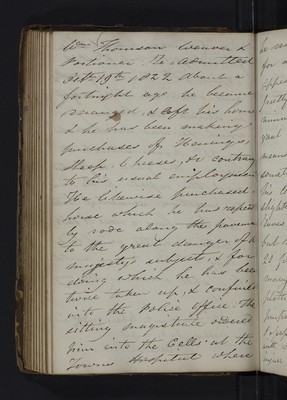 Wm Thomson Weaver &
Portioner. Is Admitted
Octr 19th 1822 About a
fortnight ago he became
deranged, & left his home
& he has been making
purchases of Herrings,
Sheep, Cheeses, &c contrary
to his usual employment
He likewise purchased a
horse which he has rapid
ly rode along the pavement
to the great danger of his
majesty's subjects, & for
doing which he has been
twice taken up, & confined
into the Police office. The
sitting magistrate ordered
him into the Cells at the
Towns Hospital where